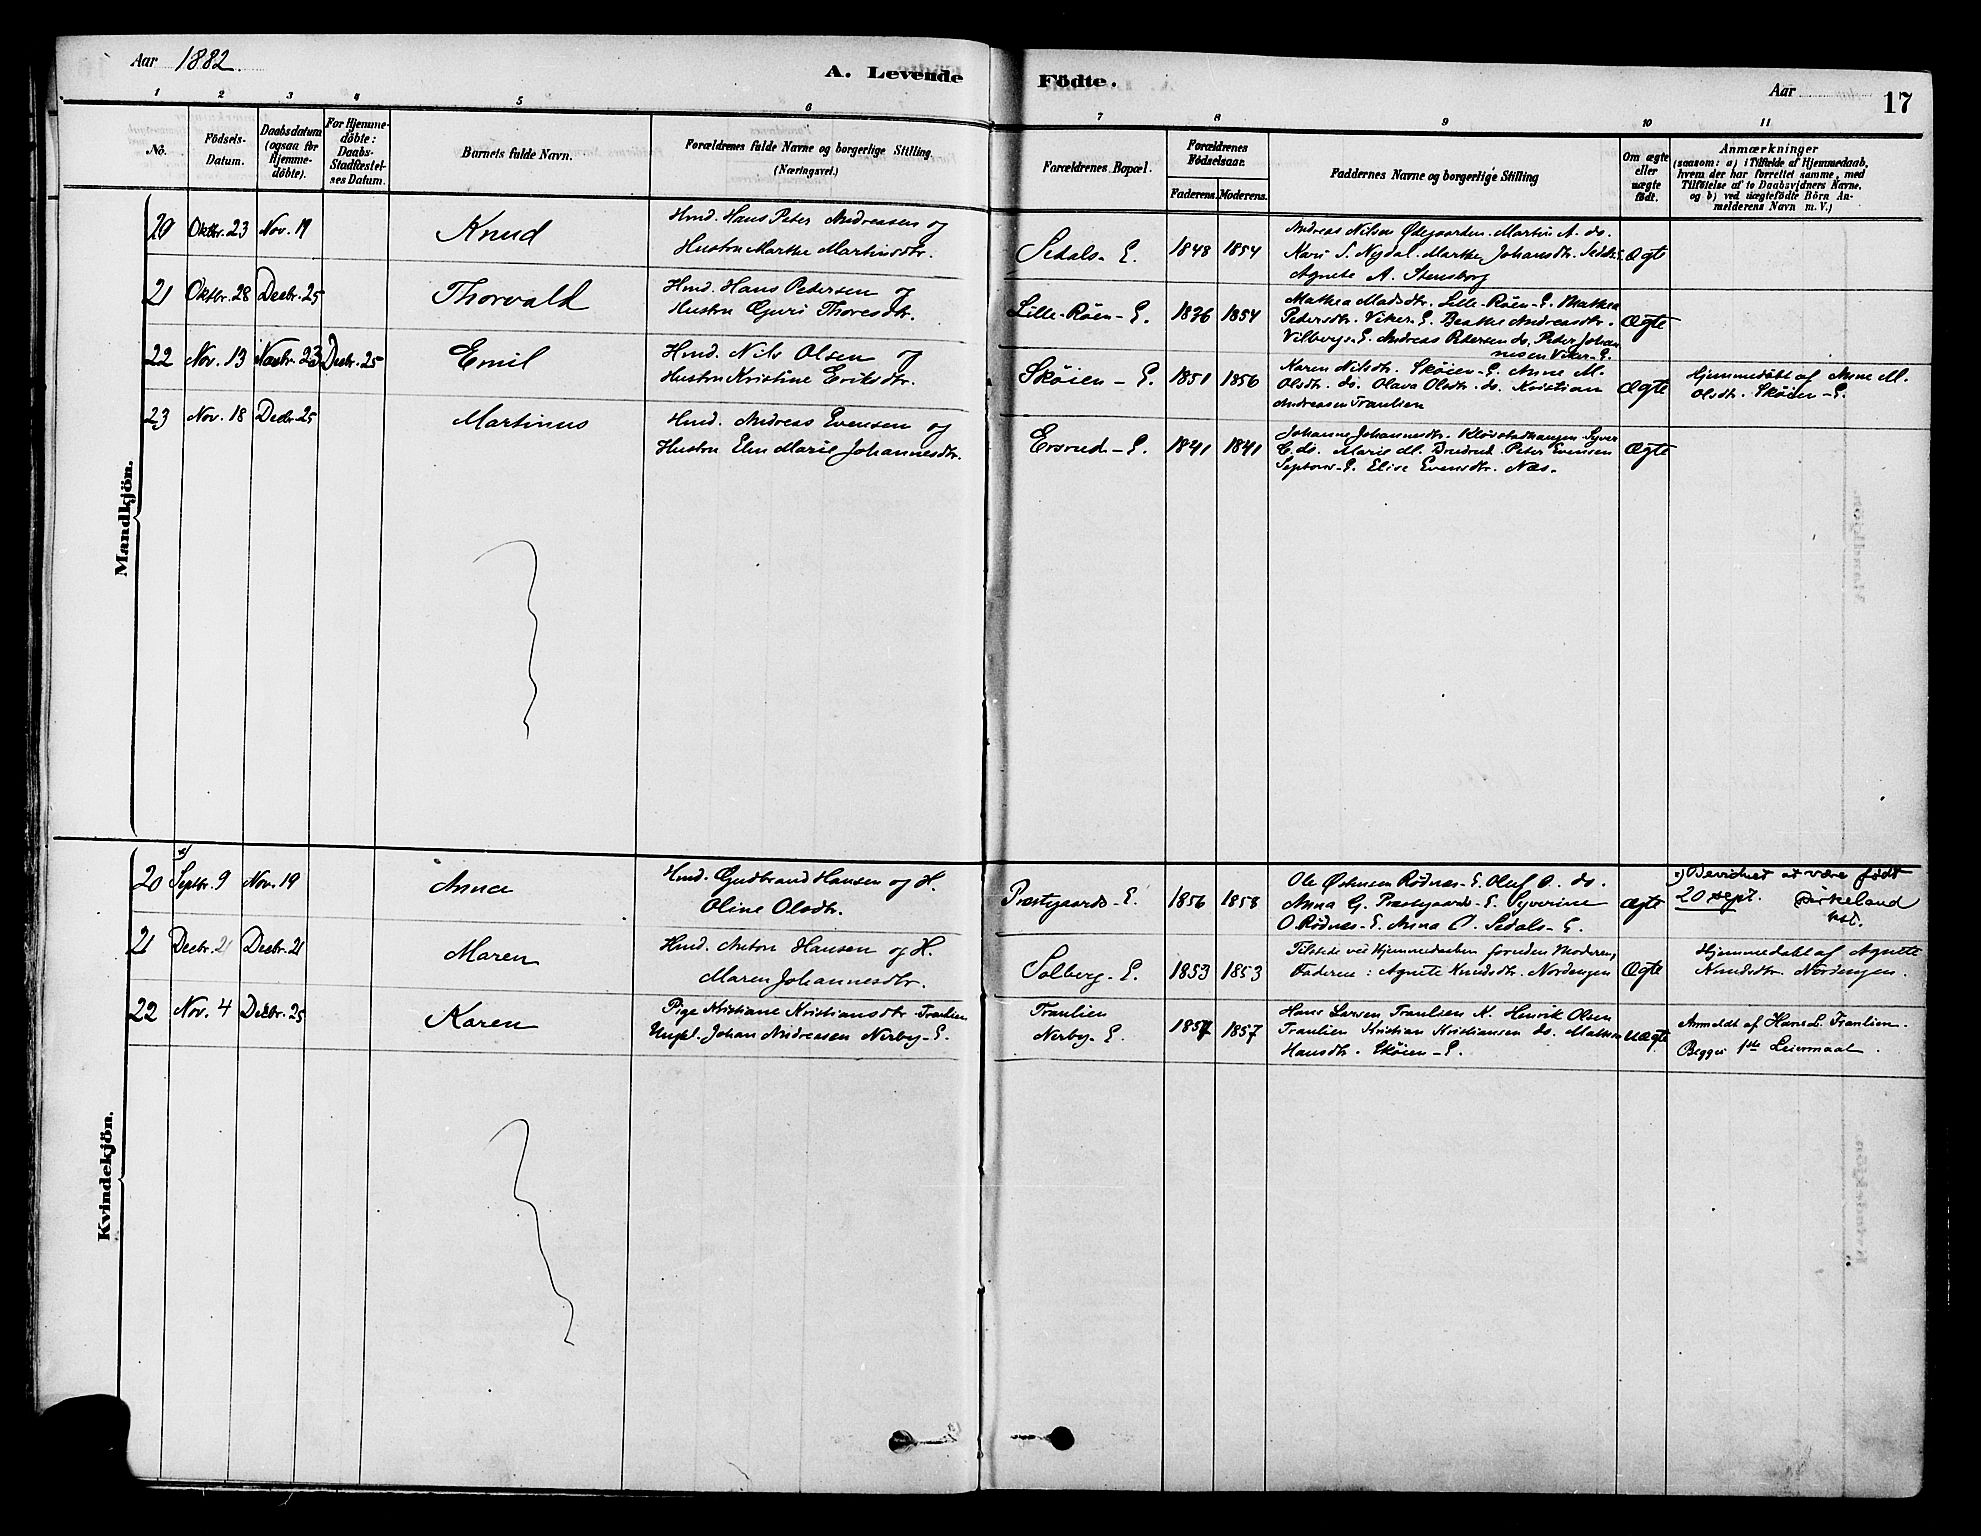 Aar 1882.
A. Levende Födte.
Aar
17
1 2 3 4 5 6 7 8 9 10 11
No.
Födsels-Datum.
Daabsdatum (ogsaa for Hjemme-döbte).
For Hjemme-döbte: Daabs-Stadfæstel-ses Datum.
Barnets fulde Navn.
Forældrenes fulde Navne og borgerlige Stilling (Næringsvei.)
Forældrenes Bopæl.
Forældrenes Födselsaar.
Faderens. Moderens.
Faddernes Navne og borgerlige Stilling
Om ægte eller uægte födt.
Anmærkninger
(saasom: a) i Tilfælde af Hjemmedaab,
hvem der har forrettet samme, med
Tilföielse af to Daabsvidners Navne.
og b) ved uægtefödte Börn An-
melderens Navn m. V.)
Mandkjön.
20 Oktbr. 23 Nov. 19 Knud
Hmd. Hans Peter Andreasen og
Hustru Marthe Martinsdtr.
Sedals-E. 1848 1854
Andreas Nilsen Ødegaarden. Martin A. do.
Kari S. Nydal. Marthe Johansdtr. Sedals
Agnete A. Stensborg
Ægte
21 Oktbr. 28 Decbr. 25 Thorvald
Hmd. Hans Petersen og
Hustru Guri Thoresdtr.
Lille-Röen-E. 1836 1854
Mathea Madsdtr. Lille-Röen-E. Mathea
Petersdtr. Viker-E. Beathe Andreasdtr.
Vilbergs-E. Andreas Petersen do. Peter Johan
nesen Viker-E.
Ægte
22 Nov. 13 Novbr. 23 Decbr. 25 Emil
Hmd. Nils Olsen og
Hustru Kristine Eriksdtr.
Sköien-E. 1851 1856
Karen Nilsdtr. Sköien-E. Anne M.
Olsdtr. do. Olava Olsdtr. do. Kristian
Andreasen Tranlien
Ægte
Hjemmedöbt af Anne M.
Olsdtr. Sköien-E.
23 Nov. 18 Decbr. 25 Martinus
Hmd. Andreas Evensen og
Hustru Elen Marie Johannesdtr.
Ersrud-E. 1841 1841
Johanne Johannesdtr. Klövstadhaugen Syver
E. do. Marie M. Peter Evensen
E. Elise Evensdtr. Næs.
Ægte
Kvindekjön.
20 x) Septbr. 9 Nov. 19 Anna
Hmd. Gudbrand Hansen og H.
Oline Olsdtr.
Præstegaards-E. 1856 1858
Ole Østensen Rödnæs-E. Oluf O. do.
Anna G. Præstegaards-E. Syverine
O. Rödnæs-E. Anna O. Sedals-E.
Ægte
x) Bevidnet at være født
20 sept. Birkeland
21 Decbr. 21 Decbr. 21 Maren
Hmd. Anton Hansen og H.
Maren Johannesdtr.
Solberg-E. 1853 1853
Tilstede ved Hjemmedaaben foruden Moderen,
Faderen: Agnete Knudsdtr. Nordengen
Ægte
Hjemmedöbt af Agnete
Knudsdtr. Nordengen.
22 Nov. 4 Decbr. 25 Karen
Pige Kristiane Kristiansdtr. Tranlien
Ungk. Johan Andreasen Nerby-E.
Tranlien
Nerby-E.
1857 1857
Hans Larsen Tranlien N. Henrik Olsen
Tranlien Kristian Kristiansen do. Mathea
Hansdtr. Sköien-E.
Uægte
Anmeldt af Hans L. Tranlien.
Begges 1ste Leiermaal.